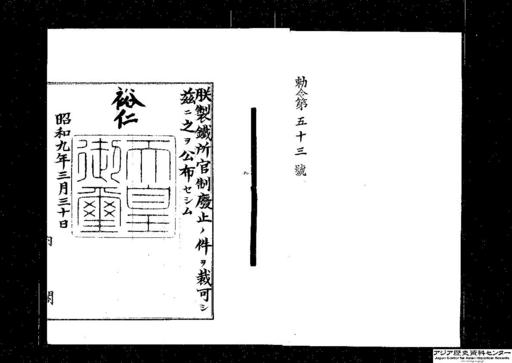 勅令第五十三號
朕製鐵所官制廢止ノ件ヲ裁可シ
茲ニ之ヲ公布セシム
裕仁
天皇
御璽
昭和九年三月三十日
内閣
アジア歴史資料センター
Japan Center for Asian Historical Records